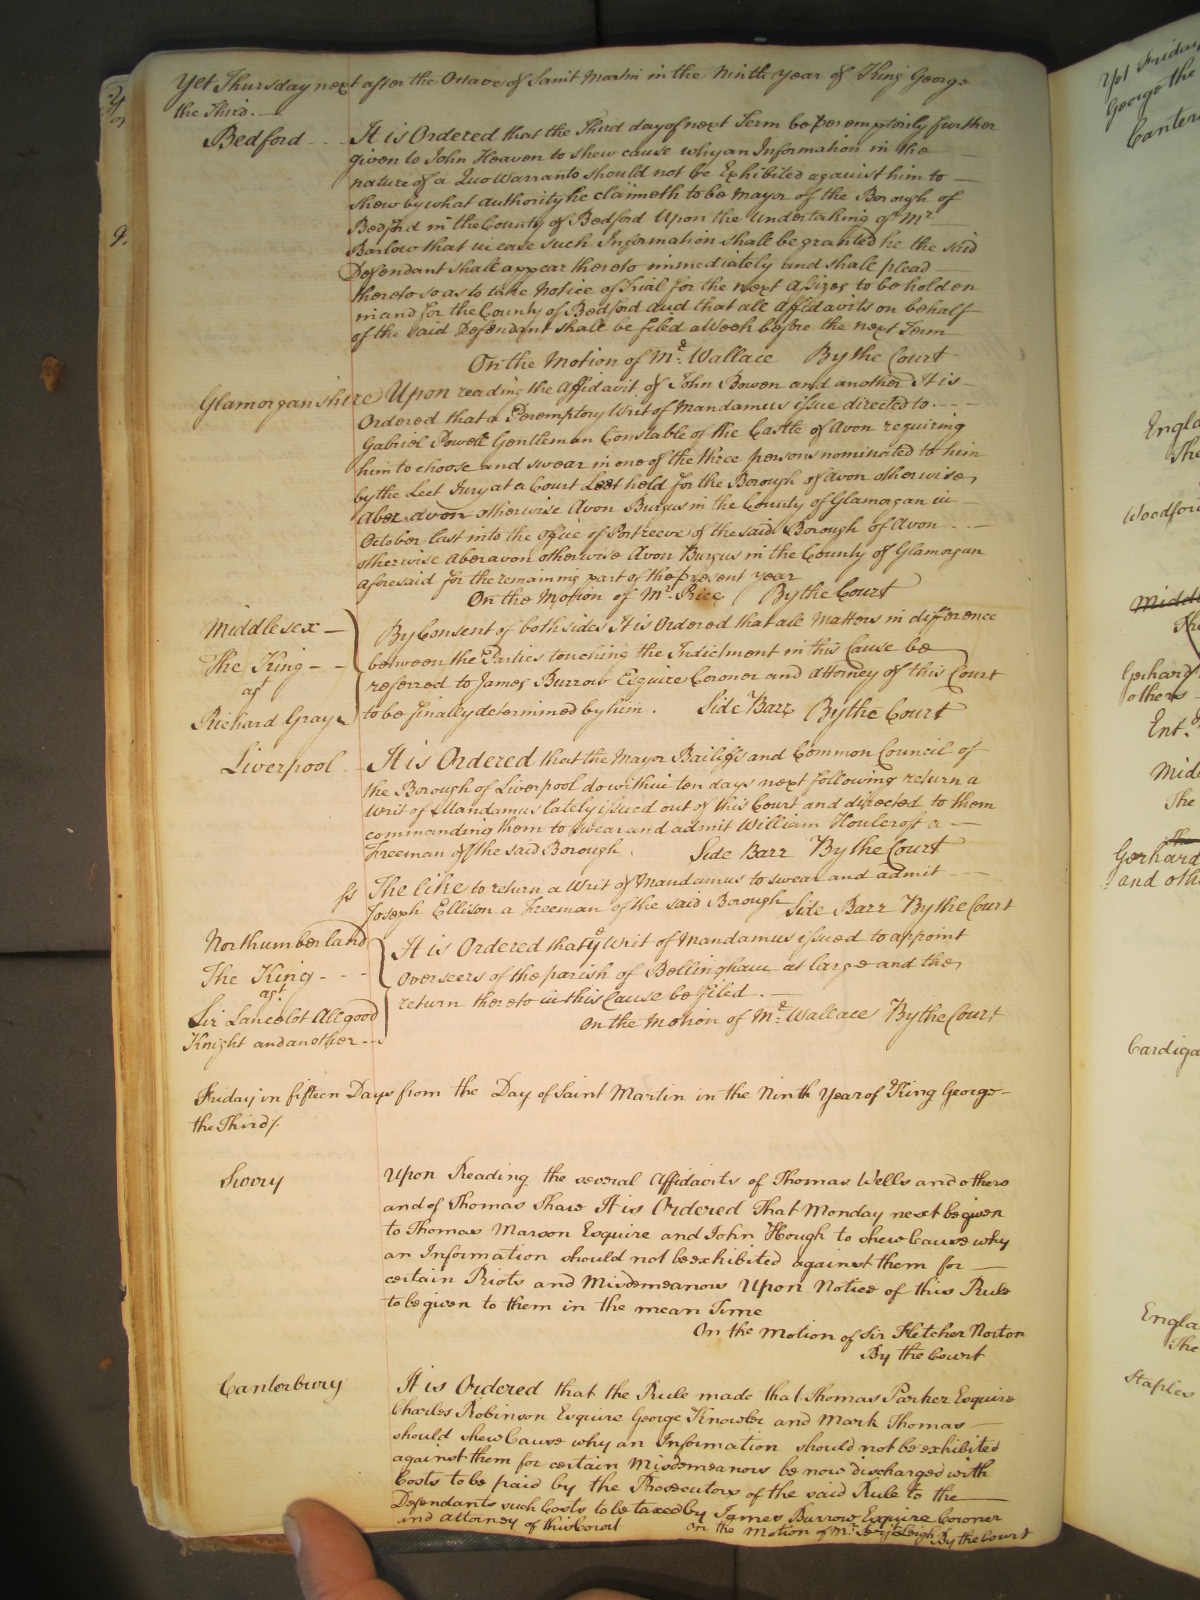 Yet Thursday next after the Octave of Saint Martin in the Ninth year of King George
the Third.
Bedford It is Ordered that the Third day of next Term be peremptorily further
given to John Heaven to shew cause why an Information in the
nature of a Quo Warranto should not be Exhibited against him to
shew by what authority he claimeth to be Mayor of the Borough of
Bedford in the County of Bedford Upon the Undertaking of Mr
Barlow that in case such Information shall be granted he the said
Defendant shall appear thereto immediately and shall plead
thereto so as to take Notice of Trial for the next Assizes to be holden
in and for the County of Bedford and that all Affidavits on behalf
of the said Defendant shall be filed a Week before the next Term
On the Motion of Mr. Wallace By the Court
Glamorganshire Upon reading the Affidavit of John Bowen and another It is
Ordered that a Peremptory Writ of Mandamus issue directed to
Gabriel Powell Gentleman Constable of the Castle of Avon requiring
him to choose and swear in one of the three persons nominated to him
by the Leet Jury at a Court Leet held for the Borough of Avon otherwise
Aberavon otherwise Avon Burgus in the County of Glamorgan in
October last into the office of Portreeve of the said Borough of Avon
otherwise Aberavon otherwise Avon Burgus in the County of Glamorgan
aforesaid for the remaining part of the present year
On the Motion of Mr. Price By the Court
Middlesex
The King
agt
Richard Gray
By Consent of both sides It is Ordered that all Matters in difference
between the Parties touching the Indictment in this Cause be
referred to James Burrow Esquire Coroner and Attorney of this Court
to be finally determined by him. Side Barr By the Court
Liverpool It is Ordered that the Mayor Bailiffs and Common Council of
the Borough of Liverpool do within ten days next following return a
Writ of Mandamus lately issued out of this Court and directed to them
commanding them to swear and admit William Houlcroft a
Freeman of the said Borough. Side Barr By the Court
ss The like to return a Writ of Mandamus to swear and admit
Joseph Ellison a Freeman of the said Borough Side Barr By the Court
Northumberland
The King
agt
Sir Lancelot Allgood
Knight and another
It is Ordered that ye Writ of Mandamus issued to appoint
Overseers of the parish of Bellingham at large and the
return thereto in this Cause be filed.
On the Motion of Mr. Wallace By the Court
Friday in fifteen Days from the Day of Saint Martin in the Ninth Year of King George
the Third/.
Surry Upon Reading the several Affidavits of Thomas Wells and others
and of Thomas Shaw It is Ordered That Monday next be given
to Thomas Marson Esquire and John Hough to shew Cause why
an Information should not be exhibited against them for
certain Riots and Misdemeanors Upon Notice of this Rule
to be given to them in the mean Time
On the Motion of Sir Fletcher Norton
By the Court
Canterbury It is Ordered that the Rule made that Thomas Parker Esquire
Charles Robinson Esquire George Knowler and Mark Thomas
should shew Cause why an Information should not be exhibited
against them for certain Misdemeanors be now discharged with
Costs to be paid by the Prosecutors of the said Rule to the
Defendants such Costs to be taxed by James Burrow Esquire Coroner
and Attorney of this Court On the Motion of Mr. Leigh By the Court
9.
Yet Friday
George the
Canter
Engla
The
Woodford
Middl
The
Gerhard
others
Ent.d
Midd
The
Gerhard
and oth
Cardiga
Engla
The
Staples